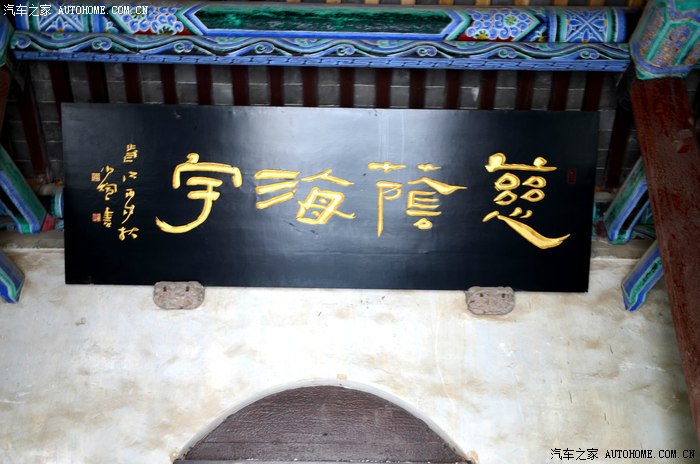 汽车之家 AUTOHOME.COM.CN
慈蔭海宇
汽车之家
AUTOHOME.COM.CN